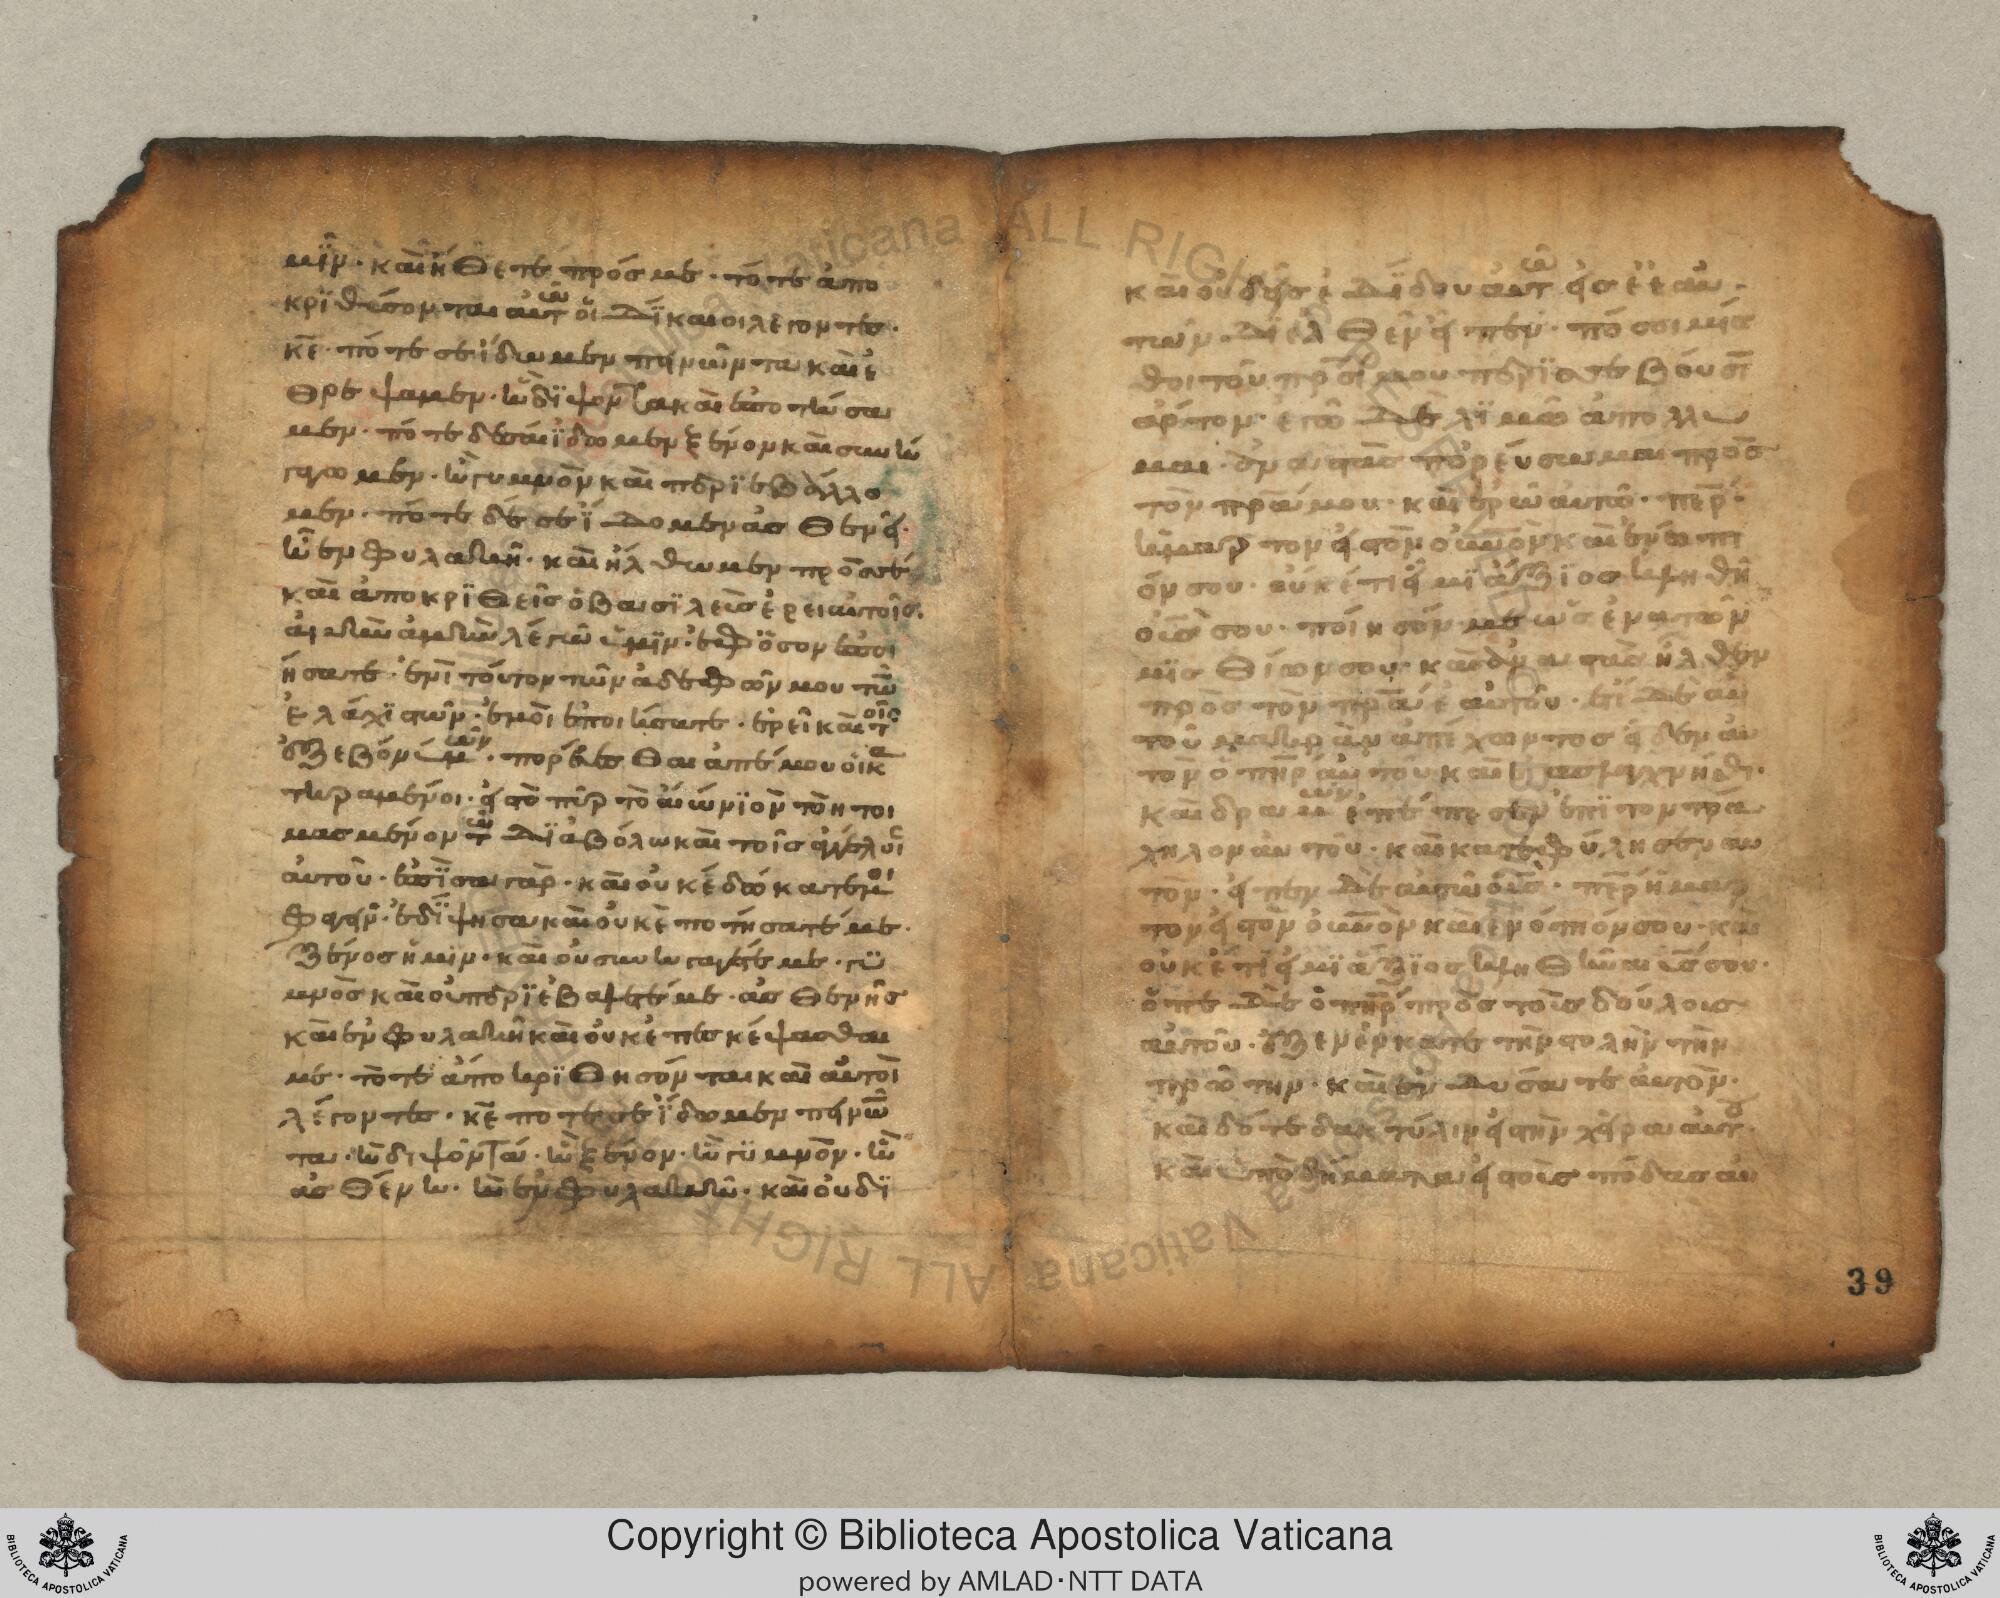 μῖν· καὶ ἤλθετε πρός με· τότε ἀπο
κριθήσονται αὐτῶ οἱ δίκαιοι λέγοντες·
κε· πότε σε ἴδωμεν πηνῶντα καὶ ἐ
θρέψαμεν· ἢ διψόντα καὶ ἐποτήσα
μεν· πότε δέ σε ἴδωμεν ξένον καὶ συνη
γάγωμεν· ἢ γυμνὸν καὶ περιεβάλλο
μεν· πότε δέ σε ἴδομεν ἀσθενῆ·
ἢ ἐν φυλακῆ· καὶ ἤλθωμεν πρός σέ·
καὶ ἀποκριθεὶς ὁ βασιλεὺς ἐρεῖ αὐτοῖς·
ἀμὴν ἀμὴν λέγω ὑμῖν· ἐφ ὅσον ἐποι
ήσατε ἑνὶ τούτον τῶν ἀδελφῶν μου τῶν
ἐλάχιστων· ἐμοὶ ἐποιήσατε· ἐρεῖ καὶ τοῖς
ἐξ εβόνύμων· πορέβεσθαι ἀπέ μου οἱ κα
τηραμένοι· εἰς τὸ πῦρ τὸ αἰώνιον τὸ ητοι
μασμένον τῶ διαβόλω καὶ τοῖς ἀγγέλοις
αὐτοῦ· ἐπίσα γὰρ· καὶ οὐκ ἐδώκατέ μοι
φαγεῖν· ἐδίψησα καὶ οὐκ ἐποτήσατέ με·
ξένος ἤμιν· καὶ οὐ συνηγάγετέ με· γυ
μνὸς καὶ οὐ περιεβάλετέ με· ἀσθενὴς
καὶ ἐν φυλακῆ καὶ οὐκ ἐπεσκέψασθαι
με· τότε ἀποκριθησόνται καὶ αὐτοὶ
λέγοντες· κε ποτε σε ἴδωμεν πηνῶν
τα· ἢ διψόντα· ἢ ξένον· ἢ γυμνὸν· ἢ
ἀσθένη· ἢ ἐν φυλακῆ· καὶ οὐ δι
καὶ οὐδεὶς ἐδίδου αὐτῶ εἰς ἑαυ
τῶν· δὲ ἐλθὼν εἶπεν· πόσοι μίσ
θοι τοῦ πρς μου περισσεβουσι
ἄρτον· ἐγὼ δὲ λιμῶ ἀπόλλυ
μαι· ἀναστὰς πορεύσωμαι πρὸς
τὸν πρα μου· καὶ ἐρῶ αὐτῶ· περ·
ἥμαρτον εἰς τὸν οὐνὸν καὶ ἐνόπι
όν σου· οὐκέτι εἰμὶ ἄξιος κληθῆναι
υἱὸς σου· ποίησόν με ὡς ἕνα τῶν
μισθίων σου· καὶ ἀναστὰς ἦλθεν
πρὸς τὸν πρα ἑαυτοῦ· ἔτι δὲ αὐ
τοῦ μακρὰν ἀπέχωντος εἶδεν αὐ
τὸν ὁ πηρ αὐτοῦ καὶ ἐσπλαχνήσθι·
καὶ δραμὼν ἐπέπεσεν ἐπὶ τον τρά
χηλον αὐτοῦ· καὶ κατεφύλησεν αυ
τον· εἶπεν δὲ αὐτῶ ὁ υἱὸς· πέρ ἥμαρ
τον εἰς τὸν οὐνὸν καὶ ἐνόπιόν σου· καὶ
οὐκέτι εἰμὶ ἄξιος κληθῆναι υς σου·
ὅπε δὲ ὁ πηρ πρὸς τοὺς δούλους
αὐτοῦ· ἐξενέγκατε τὴν στολὴν τὴν
πρώτην· καὶ ἐνδύσατε αὐτὸν·
καὶ δότε δακτύλιν εἰς τὴν χεῖρα αὐτοῦ·
καὶ ὑποδήματα εἰς τοὺς πόδας αὐ
39
Copyright © Biblioteca Apostolica Vaticana
powered by AMLAD·NTT DATA